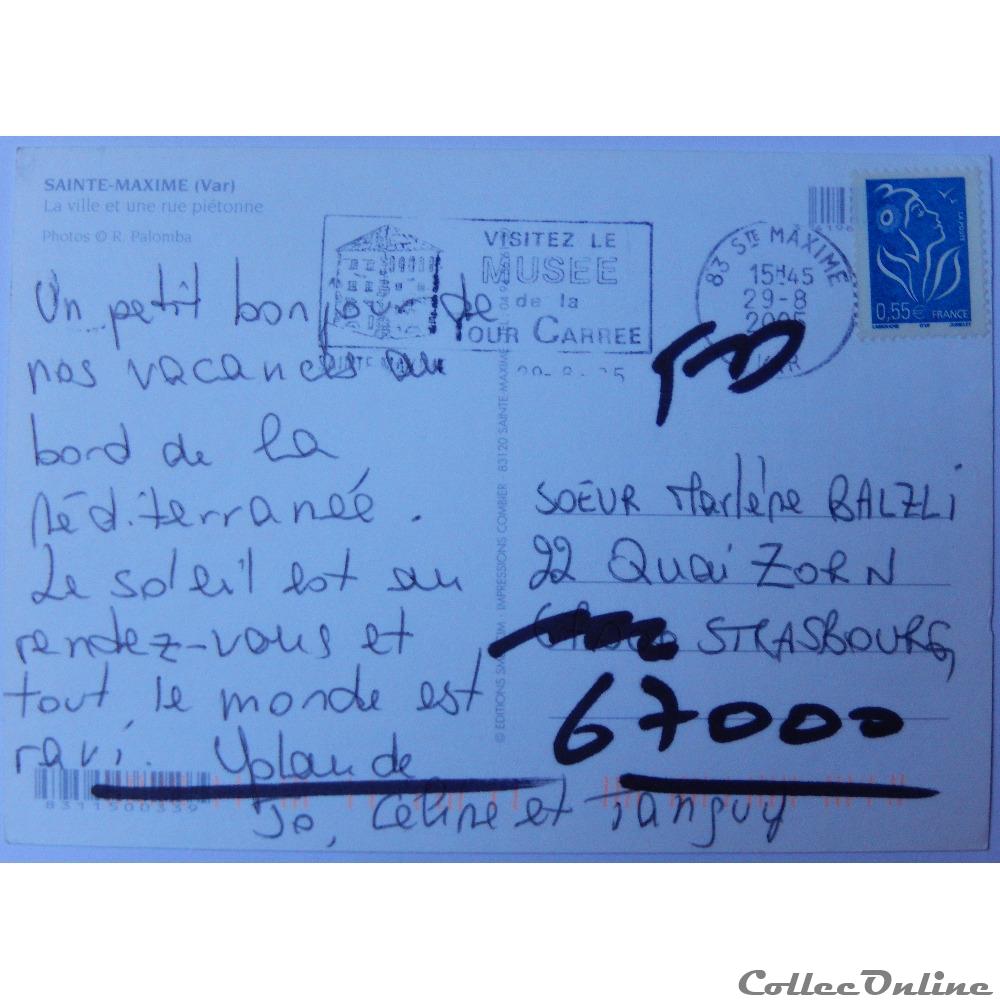 SAINTE-MAXIME (Var)
La ville et une rue piétonne
Photos © R. Palomba
Un petit bonjour de
nos vacances au
bord de la
Méditerranée.
Le soleil est au
rendez-vous et
tout le monde est
ravi. Yolande
Jo, Céline et Tanguy
8311500339
VISITEZ LE
MUSEE
de la
TOUR CARREE
SAINTE
29-8-05
83 STE MAXIME
15H45
29-8
2005
VAR
LA POSTE
0,55€ FRANCE
© EDITIONS SMETIM - IMPRESSIONS COMBIER - 83120 SAINTE-MAXIME
SOEUR Marlène BALZLI
22 Quai ZORN
STRASBOURG
67000
CollecOnline